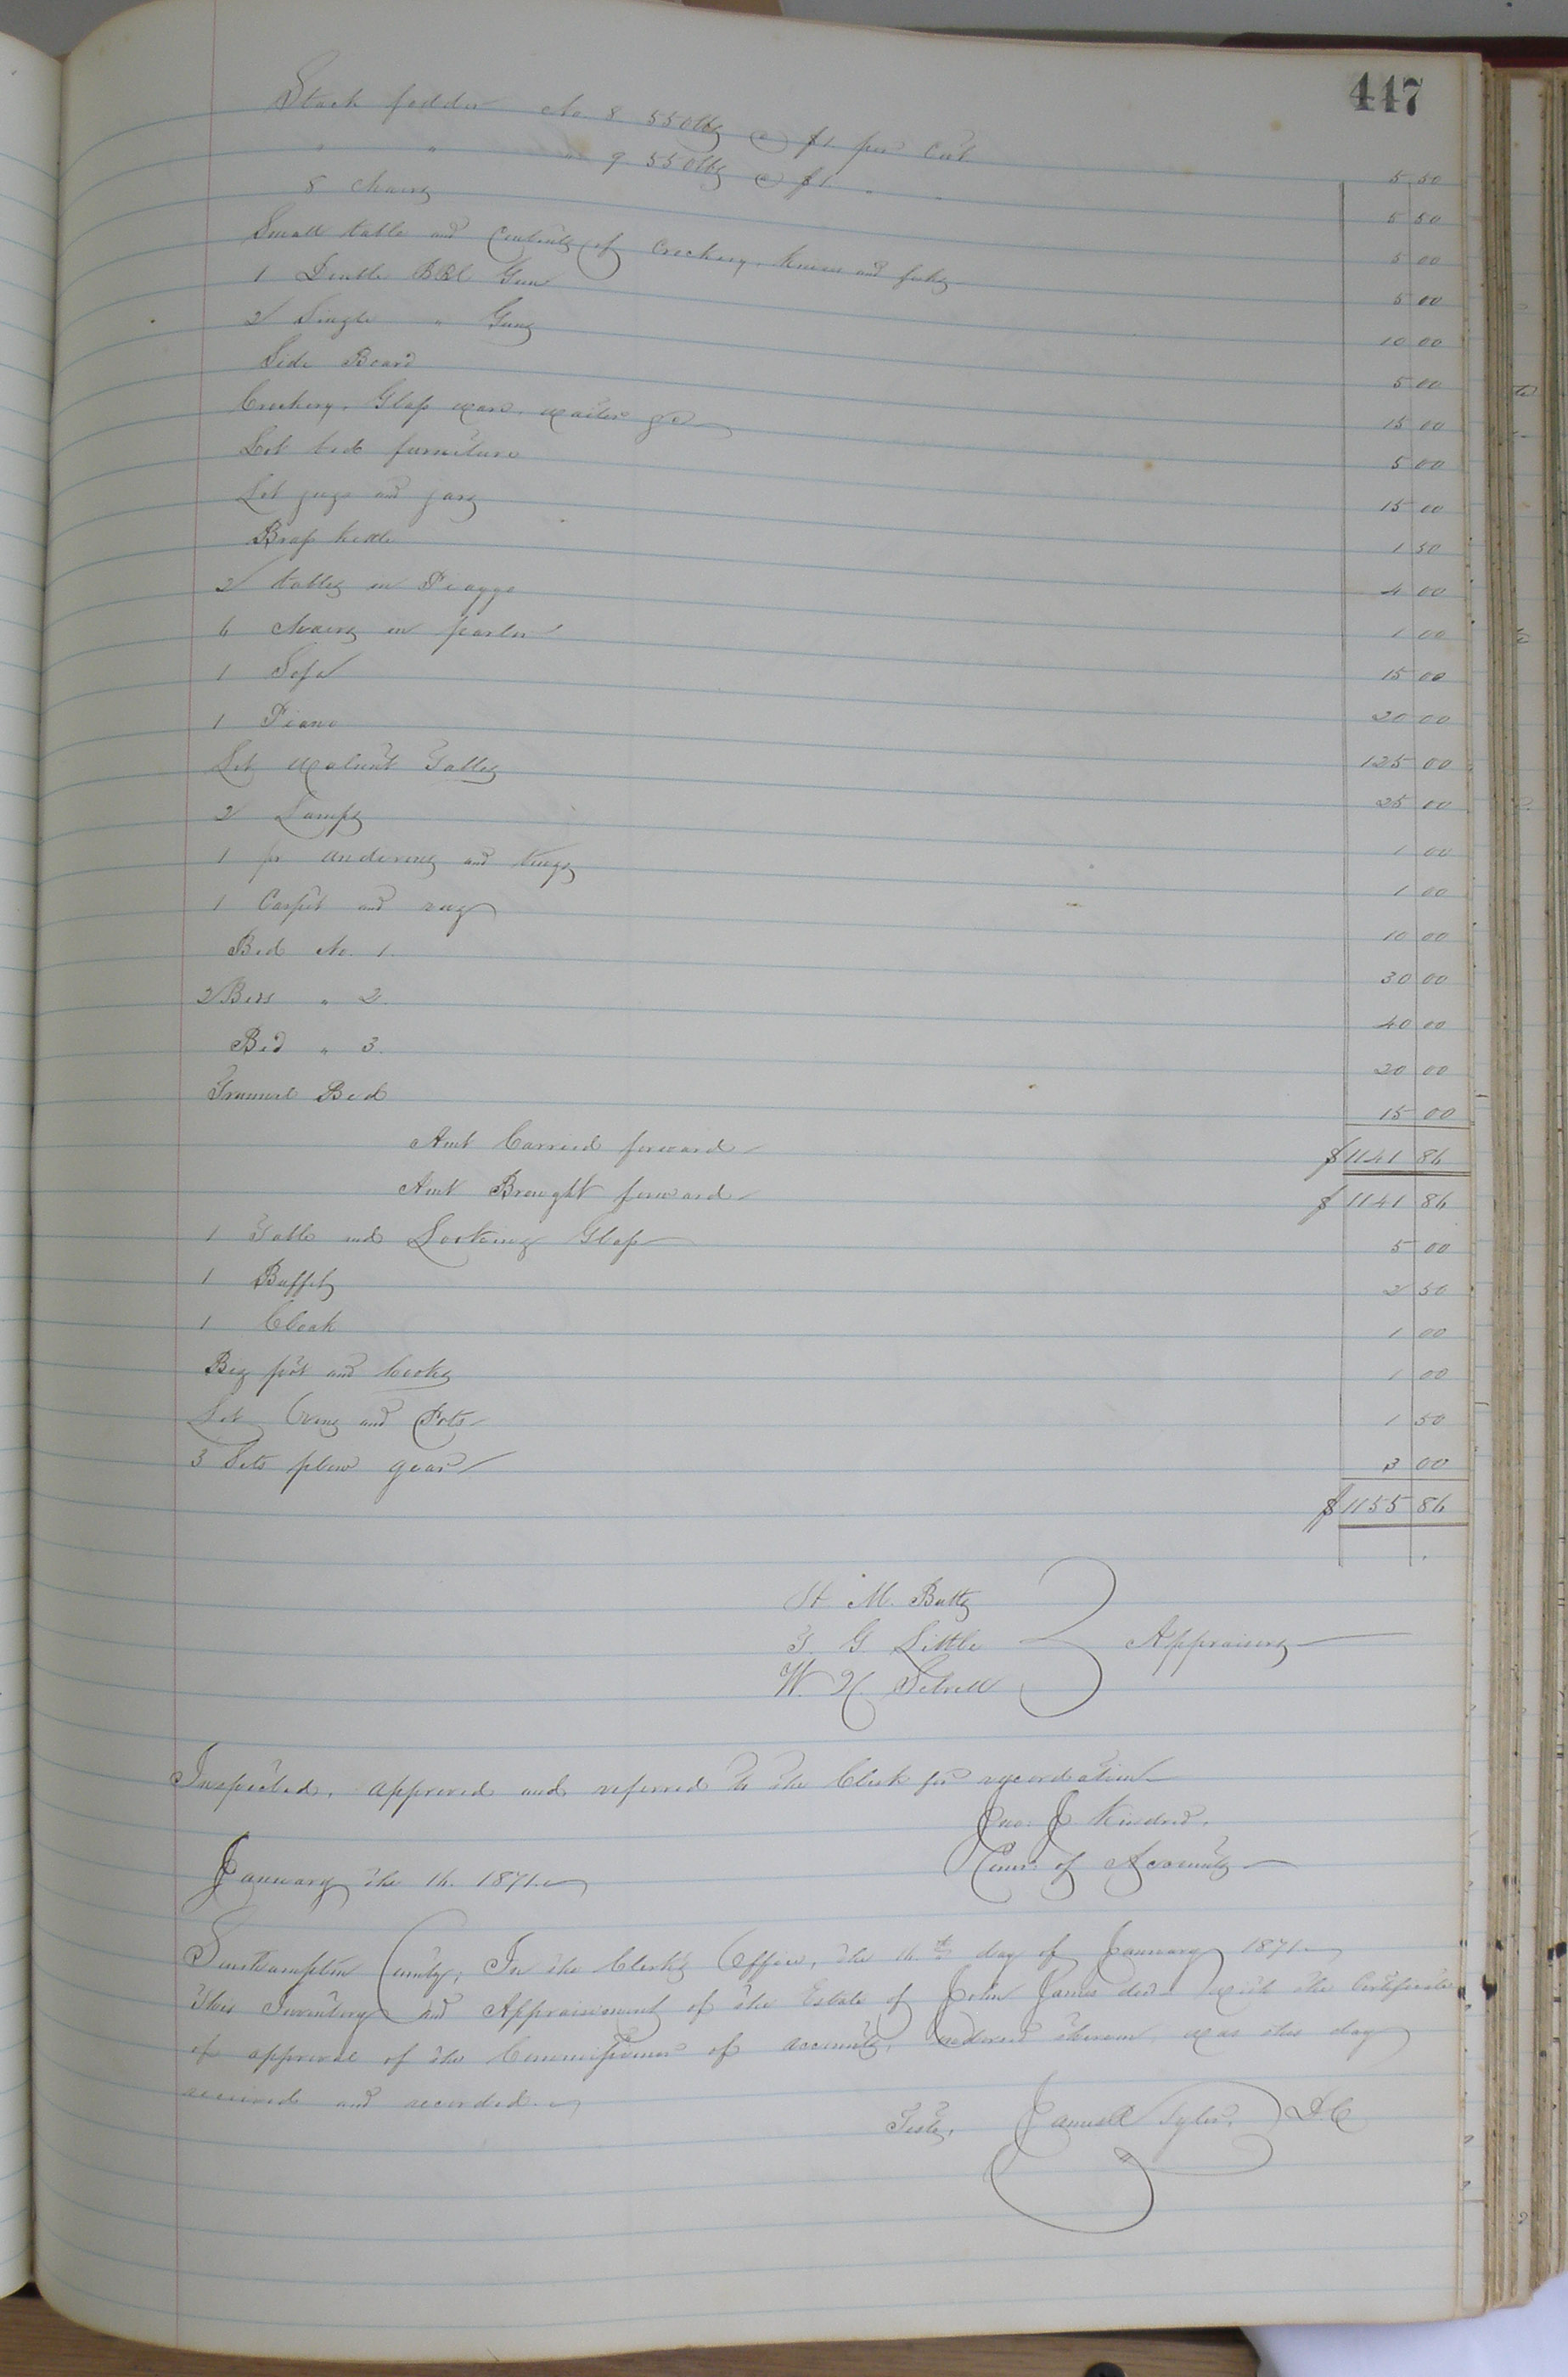 447
Stack fodder No 8 550 lbs @ $1. per Cwt 5 50
" " " 9 550 lbs @ $1. " " 5 50
8 Chairs 5 00
Small table and Contents of Crockery, knives and forks 5 00
1 Double BBl Gun 10 00
2 Single " Guns 5 00
Side Board 15 00
Crockery, Glass ware, waiter &c 5 00
Lot bed furniture 15 00
Lot jugs and jars 1 50
Brass kettle 4 00
2 tables in 1 00
6 chairs in parlor 15 00
1 Sofa 20 00
1 Piano 125 00
Set Walnut Tables 25 00
2 Lamps 1 00
1 pr andirons and tongs 1 00
1 Carpet and rug 10 00
Bed No. 1. 30 00
2 Beds " 2. 40 00
Bed " 3. 20 00
Trunnel Bed 15 00
Amt Carried forward $1141 86
Amt Brought forward $1141 86
1 Table and Looking Glass 5 00
1 Buffet 2 50
1 Clock 1 00
Big pot and hooks 1 00
Lot Ovens and Pots 1 50
3 Sets plow gear 3 00
$1155 86
H M. Butts
T. G. Little
W. H. Sebrell
Appraisers
Inspected, approved and referred to the Clerk for recordation
Jno. J Kindred.
Comr. of Accounts
January the 16. 1871.
Southampton County, In the Clerk's Office, the 16th day of January 1871.
This Inventory and Appraisement of the Estate of John James decd with the Certificate
of approval of the Commissioner of accounts, endorsed thereon, was this day
received and recorded.
Teste, James Tyler, D.C